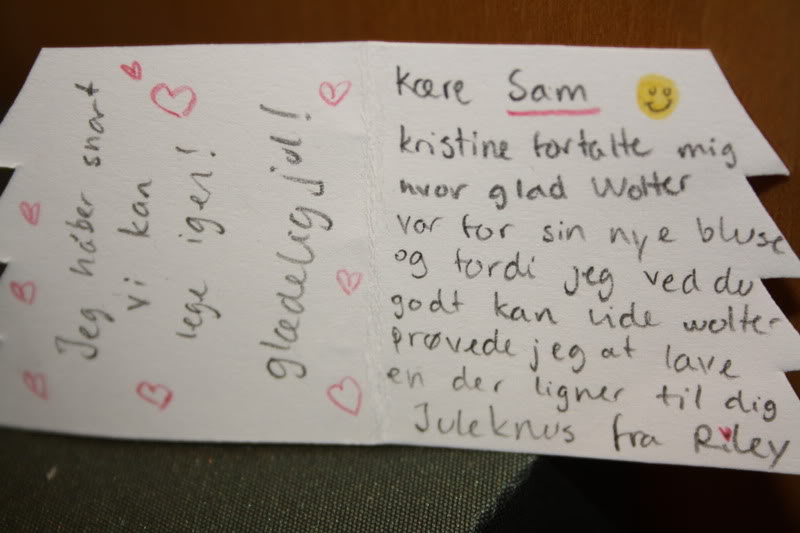 Kære Sam
kristine fortalte mig
hvor glad Wolter
var for sin nye bluse
og fordi jeg ved du
godt kan lide wolter
prøvede jeg at lave
en der ligner til dig
Juleknus fra Riley
Jeg håber snart
vi kan
lege igen!
glædelig jul!